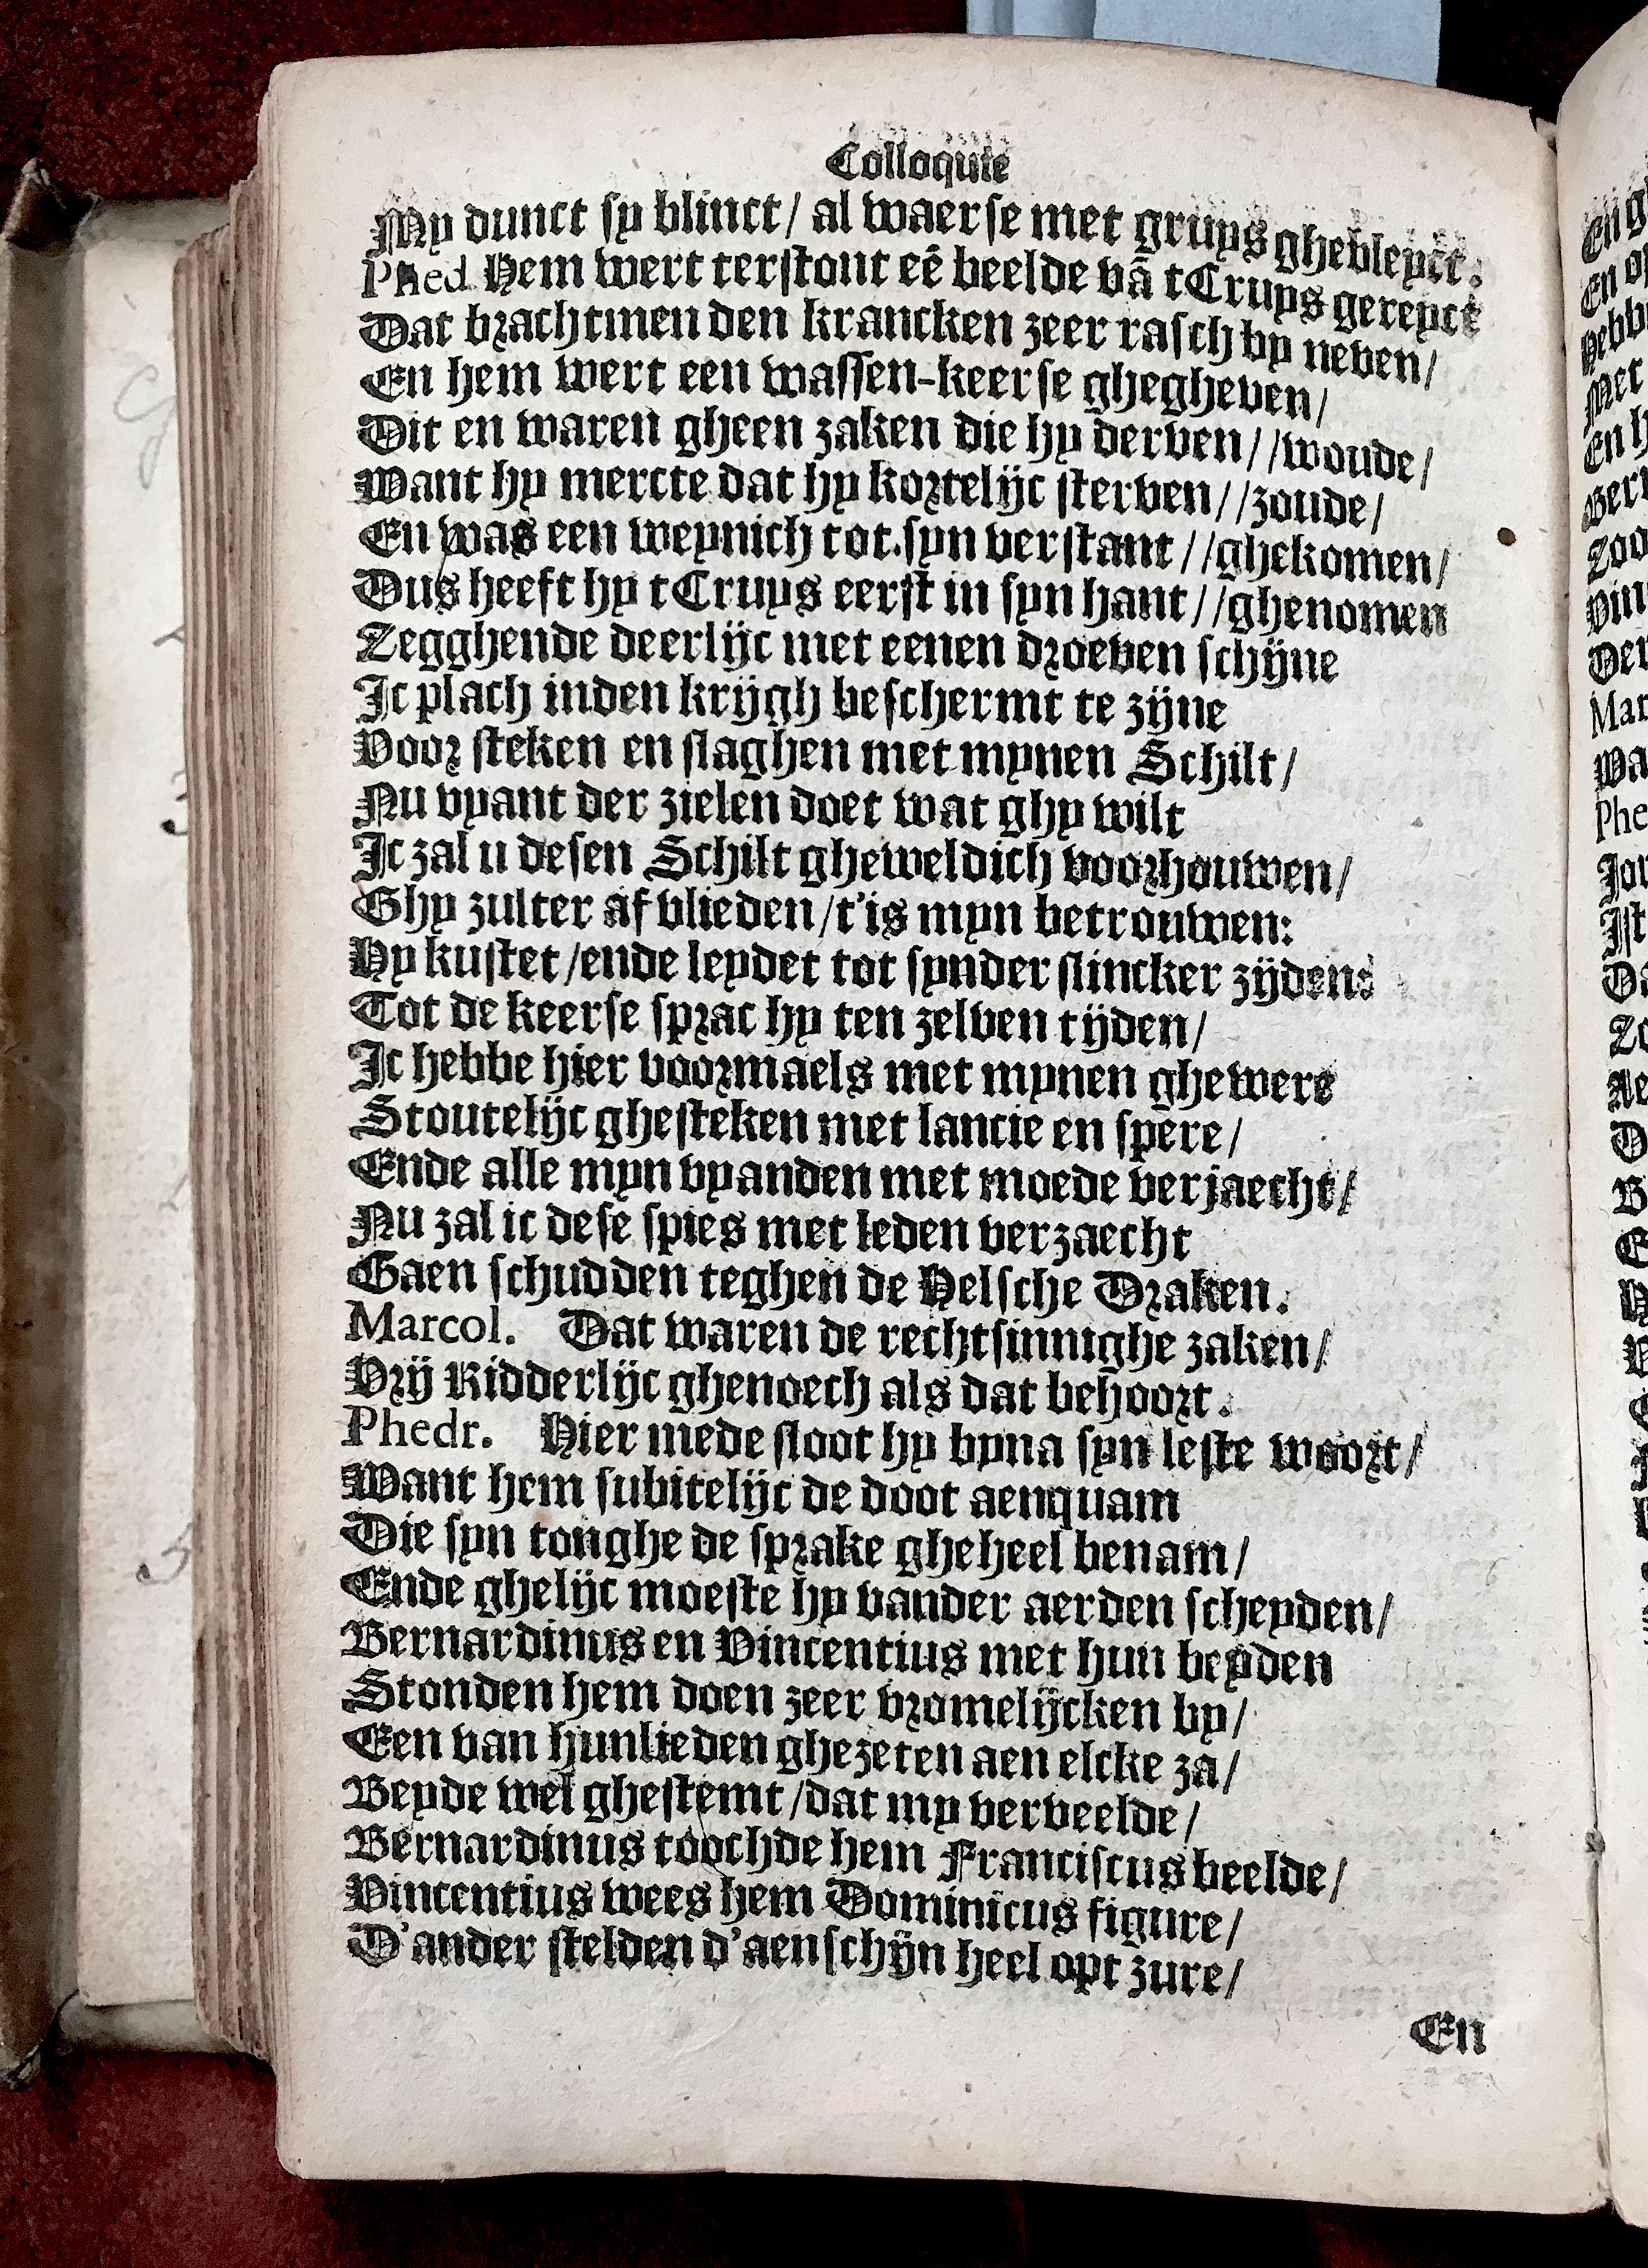 Colloquie
My dunct sy blinct/ al waerse met gruys ghebleyct.
Phed. Hem wert terstont eē beelde vā tCruys gereyct
Dat brachtmen den krancken zeer rasch by neven/
En hem wert een wassen-keerse ghegheven/
Dit en waren gheen zaken die hy derven//woude/
Want hy mercte dat hy kortelijc sterven//zoude/
En was een weynich tot syn verstant//ghekomen/
Dus heeft hy tCruys eerst in syn hant//ghenomen
Zegghende deerlijc met eenen droeven schijne
Ic plach inden krijgh beschermt te zijne
Voor steken en slaghen met mynen Schilt/
Nu vyant der zielen doet wat ghy wilt
Ic zal u desen Schilt gheweldich voorhouwen/
Ghy zulter af vlieden/t'is myn betrouwen:
Hy kustet/ende leydet tot synder slincker zijdens
Tot de keerse sprac hy ten zelven tijden/
Ic hebbe hier voormaels met mynen ghewere
Stoutelijc ghesteken met lancie en spere/
Ende alle myn vyanden met moede verjaecht/
Nu zal ic dese spies met leden verzaecht
Gaen schudden teghen de Helsche Draken.
Marcol. Dat waren de rechtsinnighe zaken/
Vrij Ridderlijc ghenoech als dat behoort.
Phedr. Hier mede sloot hy byna syn leste woort/
Want hem subitelijc de doot aenquam
Die syn tonghe de sprake gheheel benam/
Ende ghelijc moeste hy vander aerden scheyden/
Bernardinus en Vincentius met hun beyden
Stonden hem doen zeer vromelijcken by/
Een van hunlieden ghezeten aen elcke za/
Beyde wel ghestemt/dat my verveelde/
Bernardinus toochde hem Franciscus beelde/
Vincentius wees hem Dominicus figure/
D'ander stelden d'aenschijn heel opt zure/
En